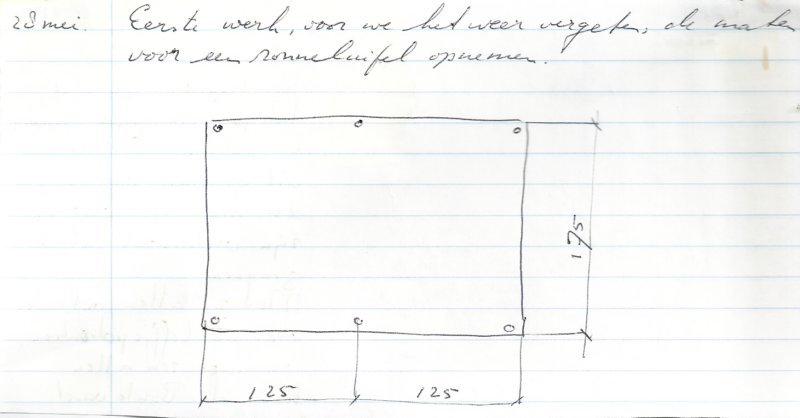 28 mei. Eerste werk, voor we het weer vergeten, de maten
voor een zonneluifel opnemen.
175
125 125